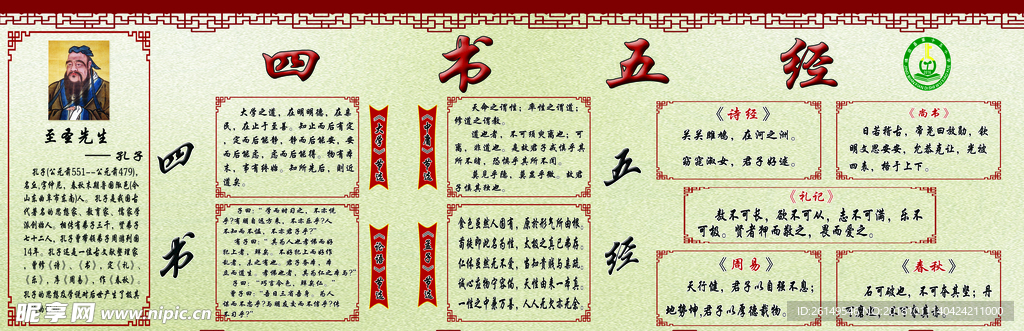 四书五经
至圣先生
——孔子
孔子(公元前551--公元前479),
名丘,字仲尼,春秋末期鲁国陬邑(今
山东曲阜市东南)人。孔子是我国古
代著名的思想家、教育家、儒家学
派创始人。相传有弟子三千,贤弟子
七十二人,孔子曾带领弟子周游列国
14年。孔子还是一位古文献整理家
,曾修《诗》、《书》,定《礼》、
《乐》,序《周易》,作《春秋》。
孔子的思想及学说对后世产生了极其
四书
大学之道,在明明德,在亲
民,在止于至善。知止而后有定
,定而后能静,静而后能安,安
而后能虑,虑而后能得。物有本
末,事有终始。知所先后,则近
道矣。
《大学》节选
《中庸》节选
天命之谓性;率性之谓道;
修道之谓教。
道也者,不可须臾离也;可
离,非道也。是故君子戒慎乎其
所不睹,恐惧乎其所不闻。
莫见乎隐,莫显乎微。故君
子慎其独也。
子曰:“学而时习之,不亦悦
乎?有朋自远方来,不亦乐乎?人
不知而不愠,不亦君子乎?”
有子曰:“其为人也孝悌而好
犯上者,鲜矣。不好犯上而好作
乱者,未之有也。君子务本,本
立而道生。孝悌也者,其为仁之本与?”
子曰:“巧言令色,鲜矣仁。”
曾子曰:“吾日三省吾身。为人
谋而不忠乎?与朋友交而不信乎?传
不习乎?”
《论语》节选
《孟子》节选
食色虽然人固有,原于形气所由根。
仁体虽然无不爱,当知贵贱与亲疏。
五经
《诗经》
关关雎鸠,在河之洲。
窈窕淑女,君子好逑。
《尚书》
曰若稽古,帝尧曰放勋,钦
明文思安安,允恭克让,光被
四表,格于上下。
《礼记》
敖不可长,欲不可从,志不可满,乐不
可极。贤者狎而敬之,畏而爱之。
《周易》
天行健,君子以自强不息;
地势坤,君子以厚德载物。
《春秋》
石可破也,不可夺其坚;丹
昵享网 www.nipic.cn